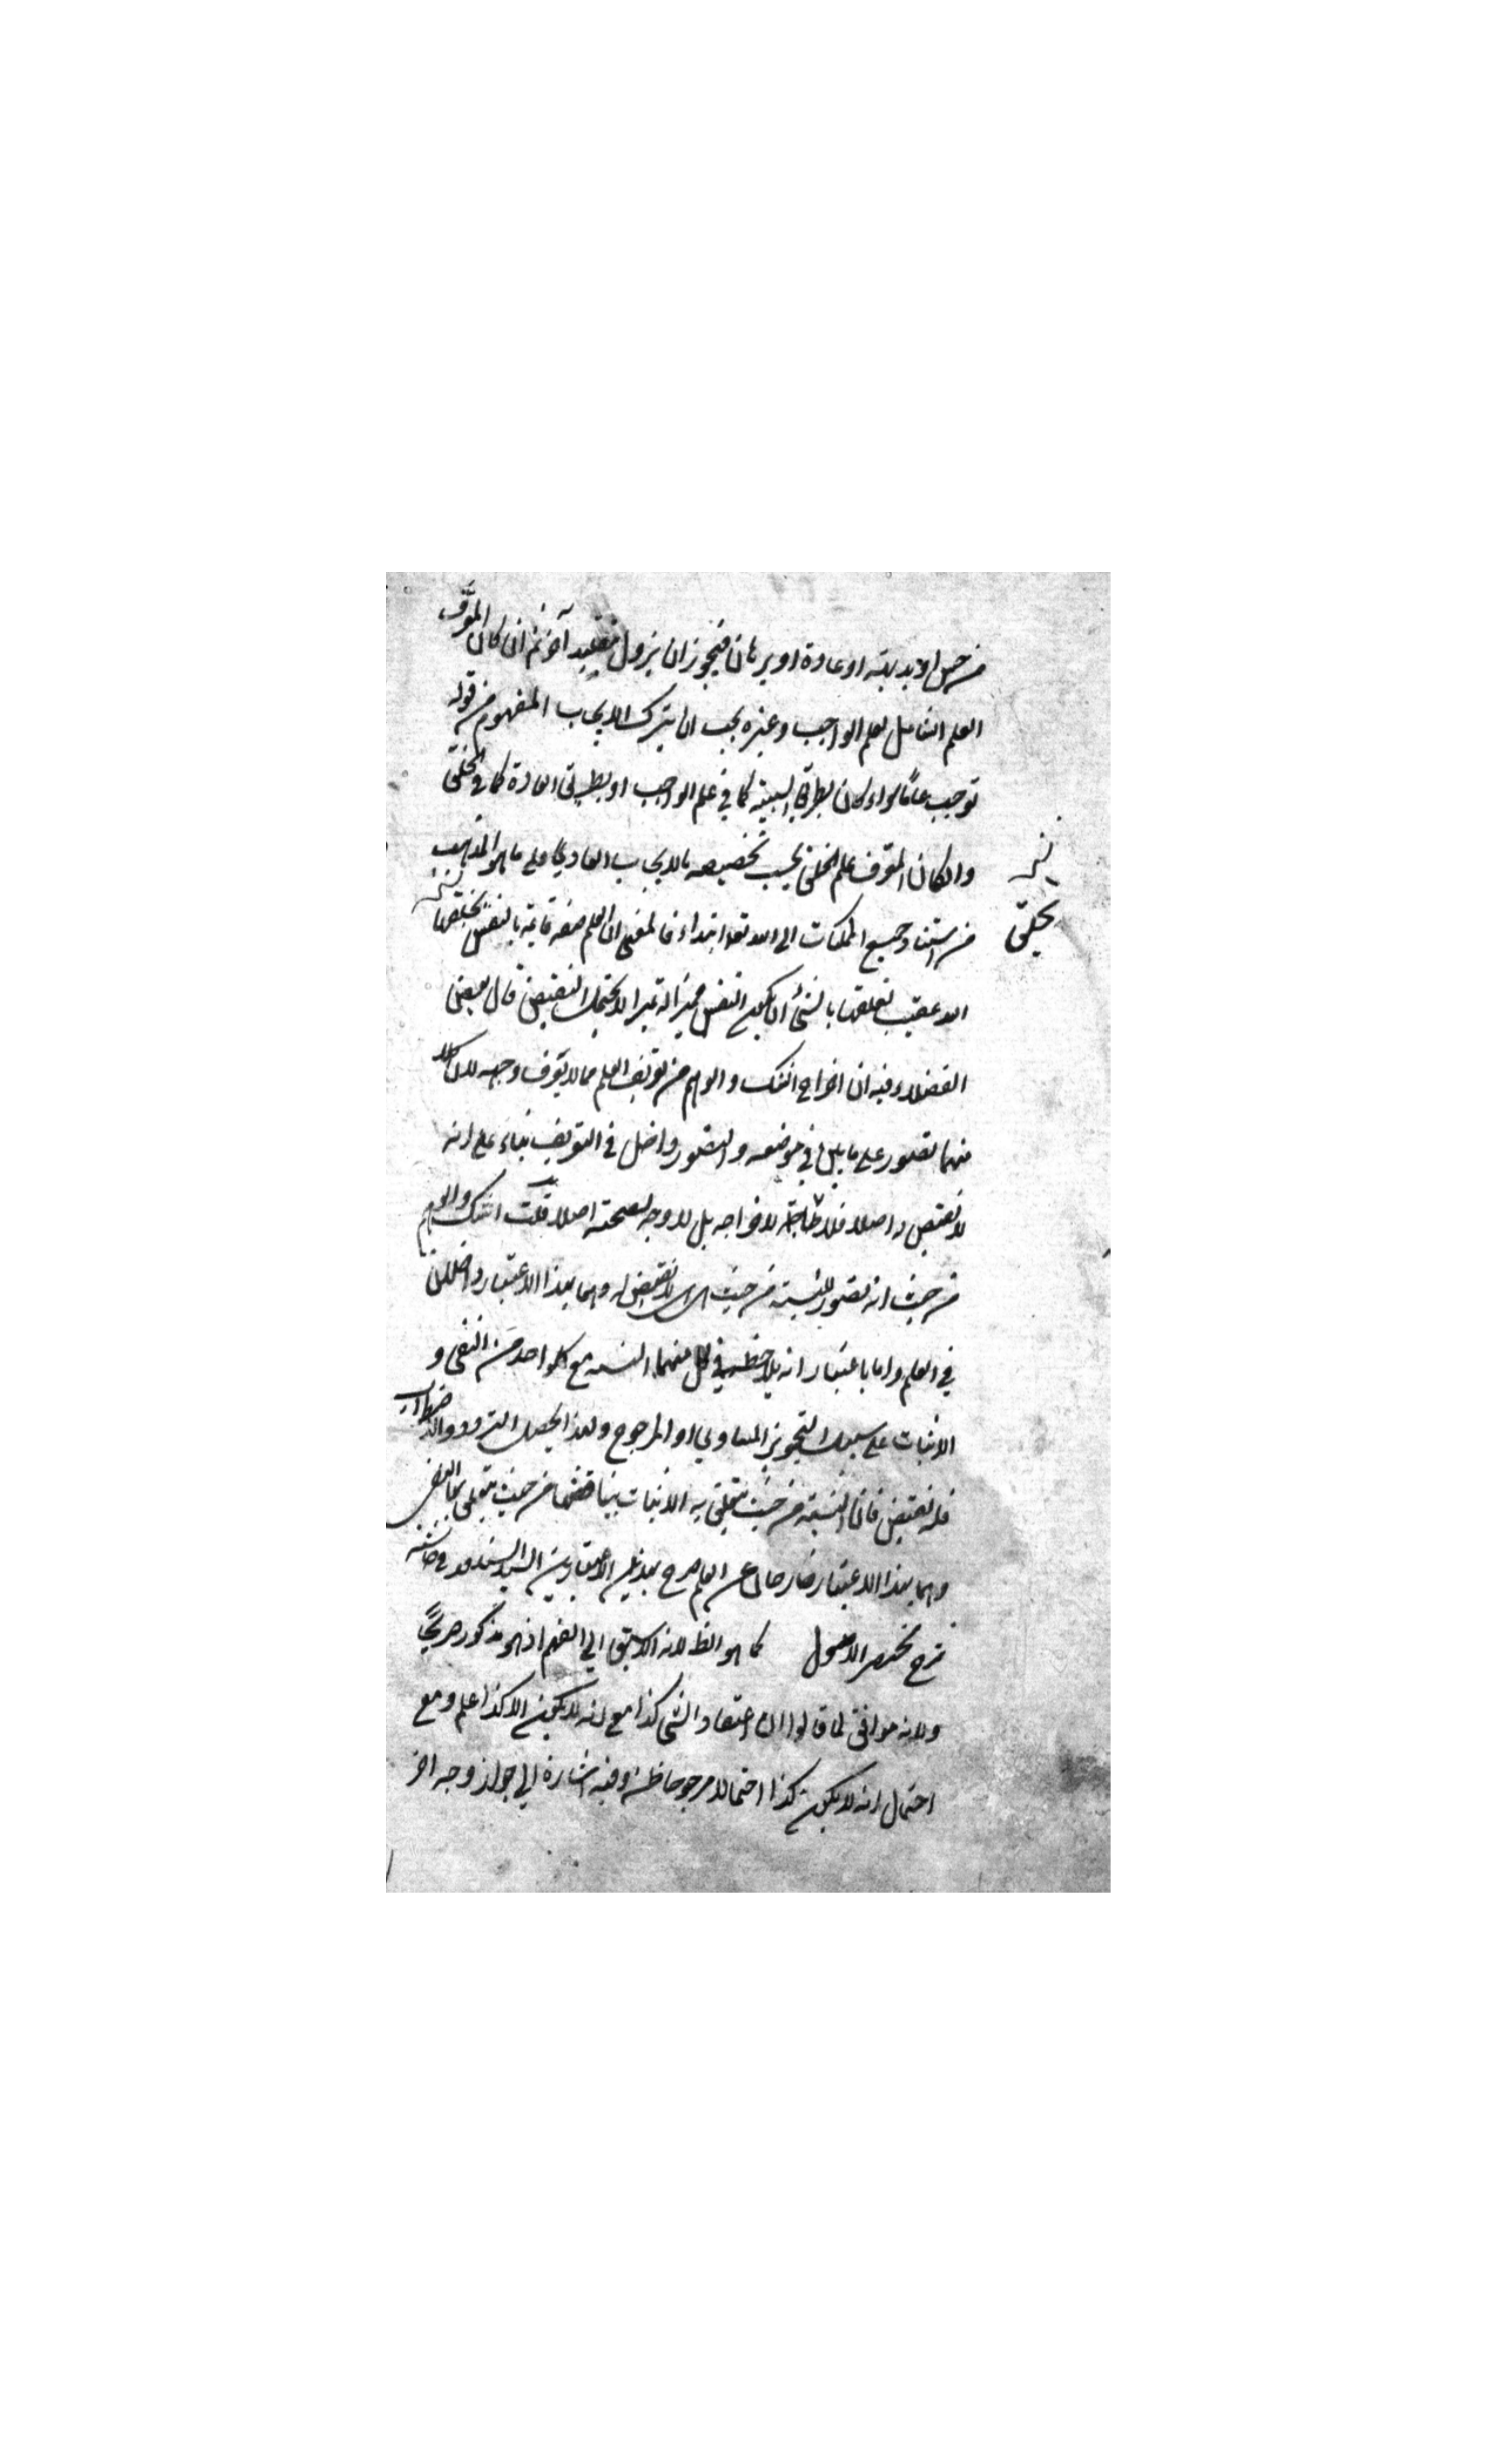 من حس او بديهة او عادة او برهان فيجوز ان يزول بتقليد آخر ثم ان كان المعرَّف
العلم الشامل لعلم الواجب وغيره يجب ان يترك الايجاب المفهوم من قوله
توجب عامًا سواء كان بطريق السببية كما في علم الواجب او بطريق العادة كما في الخلق
وان كان المعرف علم الخلق يجب تخصيصه بالايجاب العادي على ما هو المذهب
من استناد جميع الممكنات الى الله تعا ابتداء فالمعنى ان العلم صفة قائمة بالنفس يخلقها
الله عقيب تعلقها بالشئ ان يكون النفس مميزا له تميزا لا يحتمل النقيض قال بعض
الفضلاء وفيه ان اخراج الشك والوهم من تعريف العلم مما لا يعرف وجهه لان كلا
منهما تصور على ما بين في موضعه والتصور داخل في التعريف بناء على انه
لا نقيض له اصلا فلا حاجة لاخراجه بل لا وجه لصحته اصلا قلت الشك والوهم
من حيث انه تصور للنسبة من حيث هي هي لا نقيض له وهما بهذا الاعتبار داخلان
في العلم واما باعتبار انه يلاحظ في كل منهما النسبة مع كل واحد من النفي و
الاثبات على سبيل التجويز المساوي او المرجوح ولهذا يحصل التردد والاضطراب
فله نقيض فان النسبة من حيث يتعلق به الاثبات يناقضها من حيث يتعلق بها النفي
وهما بهذا الاعتبار خارجان عن العلم صرح بهذين الاعتبارين السيد السند قده في حاشية
شرح مختصر الاصول كما هو الظ لانه الاسبق الى الفهم اذ هو مذكور صريحًا
ولانه موافق لما قالوا ان اعتقاد الشئ كذا مع انه لا يكون الا كذا علم ومع
احتمال انه لا يكون كذا احتمالا مرجوحا ظن وفيه اشارة الى جواز وجه اخر
يخلق